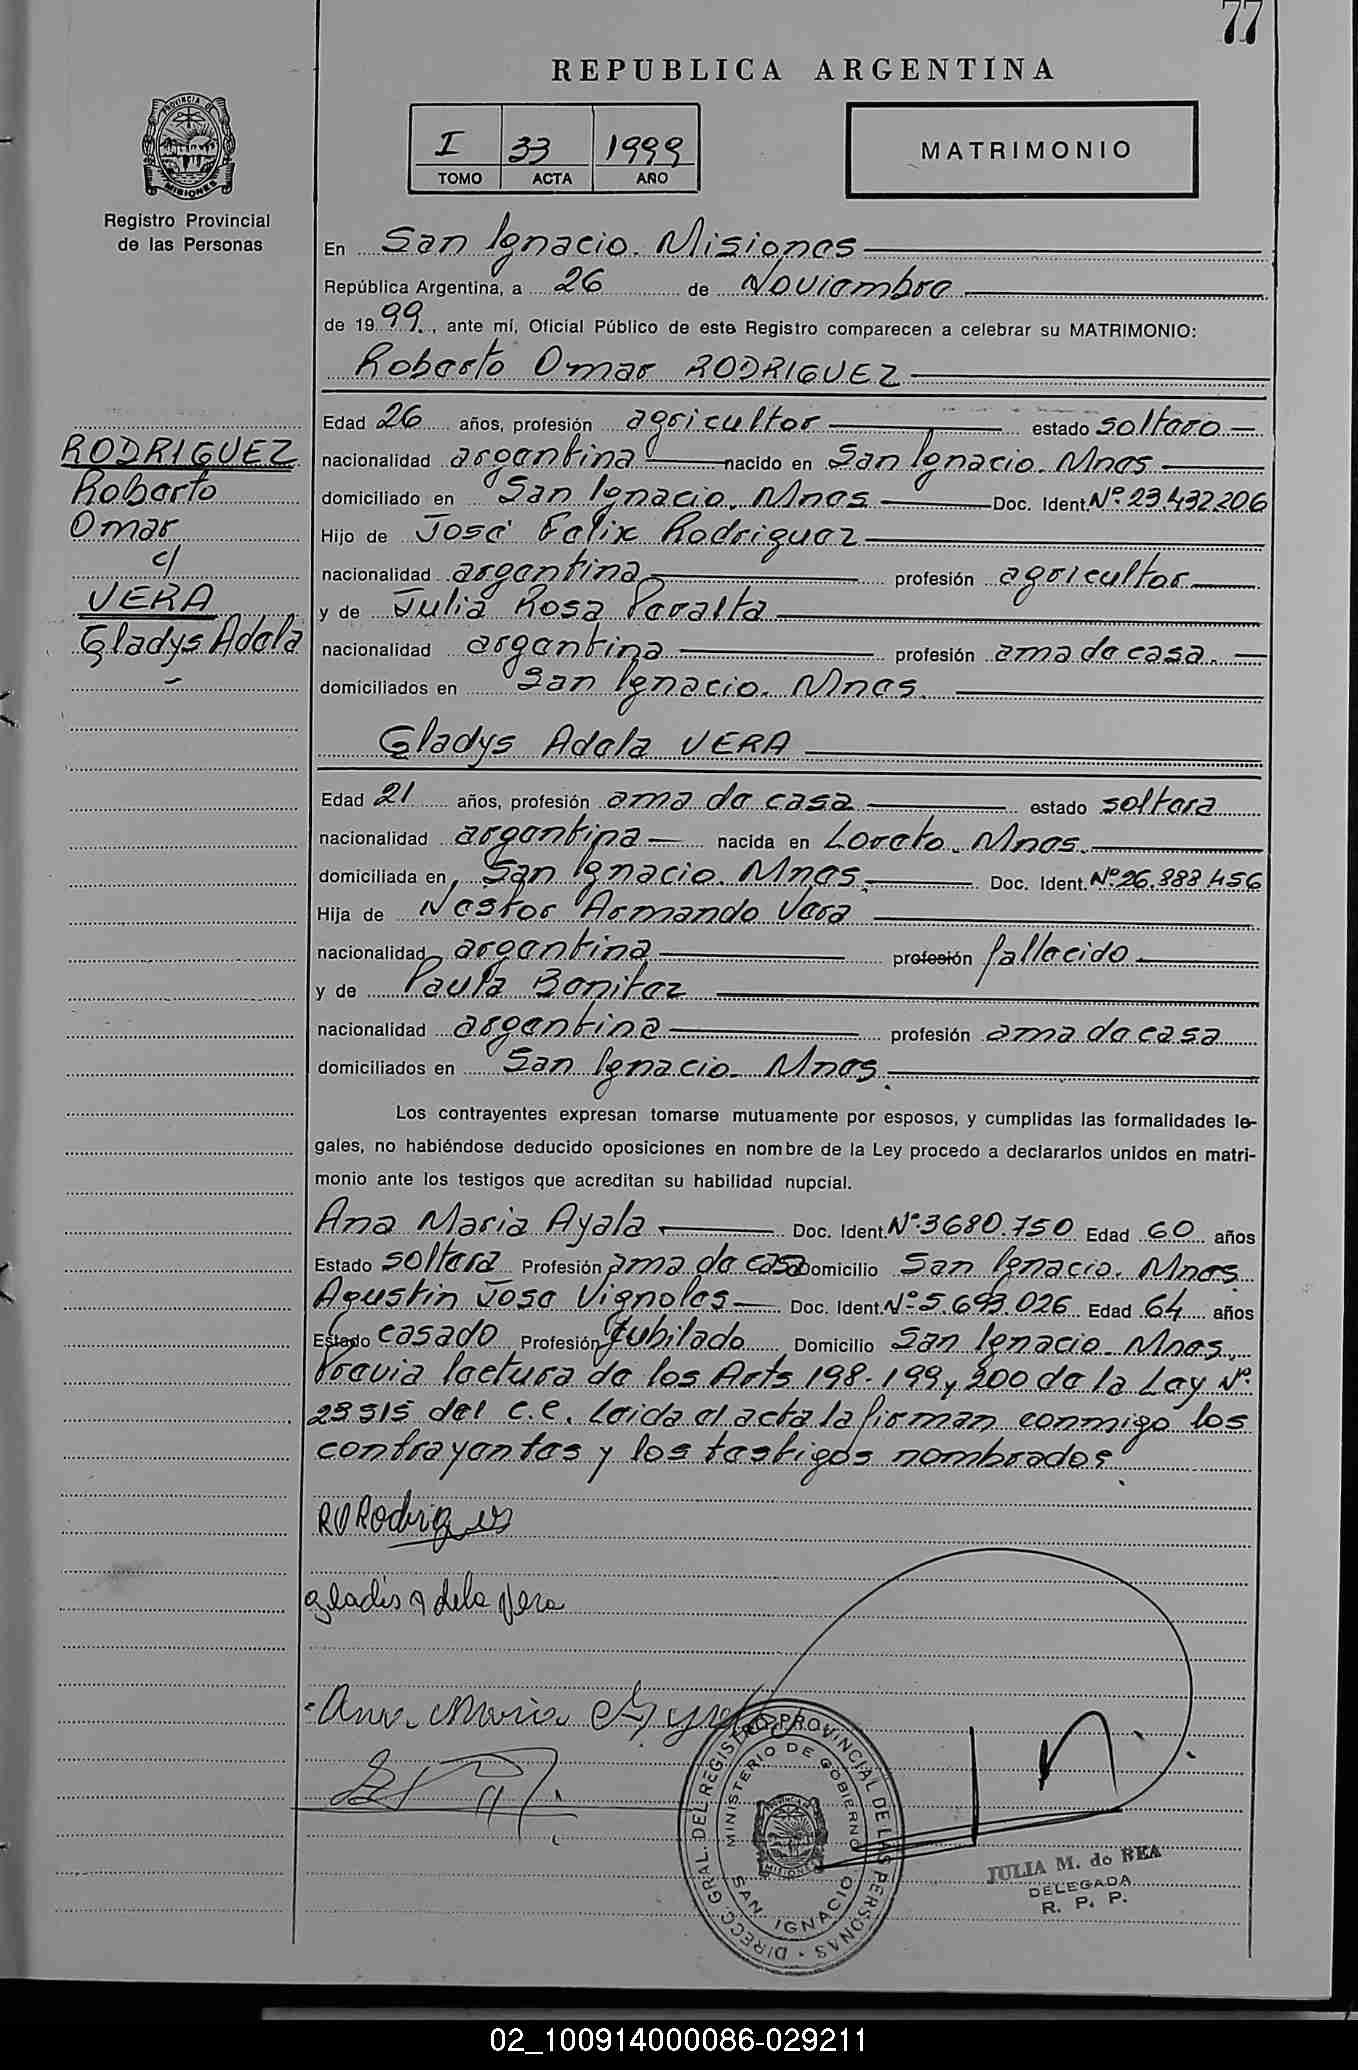 77
REPUBLICA ARGENTINA
I 33 1999
TOMO ACTA AÑO
MATRIMONIO
PROVINCIA DE MISIONES
Registro Provincial
de las Personas
En San Ignacio. Misiones
República Argentina, a 26 de Noviembre
de 1999, ante mí, Oficial Público de este Registro comparecen a celebrar su MATRIMONIO:
Roberto Omar RODRIGUEZ
RODRIGUEZ
Roberto
Omar
c/
VERA
Gladys Adela
Edad 26 años, profesión agricultor estado soltero
nacionalidad argentina nacido en San Ignacio. Mnes
domiciliado en San Ignacio. Mnes Doc. Ident. Nº 23.432.206
Hijo de José Felix Rodriguez
nacionalidad argentina profesión agricultor
y de Julia Rosa Peralta
nacionalidad argentina profesión ama de casa.
domiciliados en San Ignacio. Mnes.
Gladys Adela VERA
Edad 21 años, profesión ama de casa estado soltera
nacionalidad argentina nacida en Loreto. Mnes.
domiciliada en San Ignacio. Mnes. Doc. Ident. Nº 26.888.456
Hija de Nestor Armando Vera
nacionalidad argentina profesión fallecido
y de Paula Benitez
nacionalidad argentina profesión ama de casa
domiciliados en San Ignacio. Mnes.
Los contrayentes expresan tomarse mutuamente por esposos, y cumplidas las formalidades le-
gales, no habiéndose deducido oposiciones en nombre de la Ley procedo a declararlos unidos en matri-
monio ante los testigos que acreditan su habilidad nupcial.
Ana Maria Ayala Doc. Ident. Nº 3680.750 Edad 60 años
Estado soltera Profesión ama de casa Domicilio San Ignacio. Mnes
Agustin Jose Vignoles Doc. Ident. Nº 5.693.026 Edad 64 años
Estado casado Profesión Jubilado Domicilio San Ignacio. Mnes.
Previa lectura de los Arts 198. 199 y 200 de la Ley Nº
23515 del C.C. Leida el acta la firman conmigo los
contrayentes y los testigos nombrados.
RO Rodriguez
gladis Adela Vera
Ana Maria Ayala
DIRECC. GRAL. DEL REGISTRO PROVINCIAL DE LAS PERSONAS
MINISTERIO DE GOBIERNO
PROVINCIA DE MISIONES
SAN IGNACIO
JULIA M. de REA
DELEGADA
R. P. P.
02_100914000086-029211